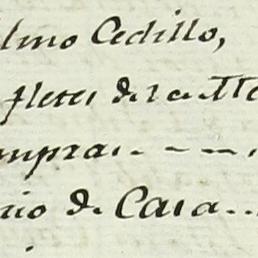 lmo Cedillo,
fletes del
mpras
cio de Casa